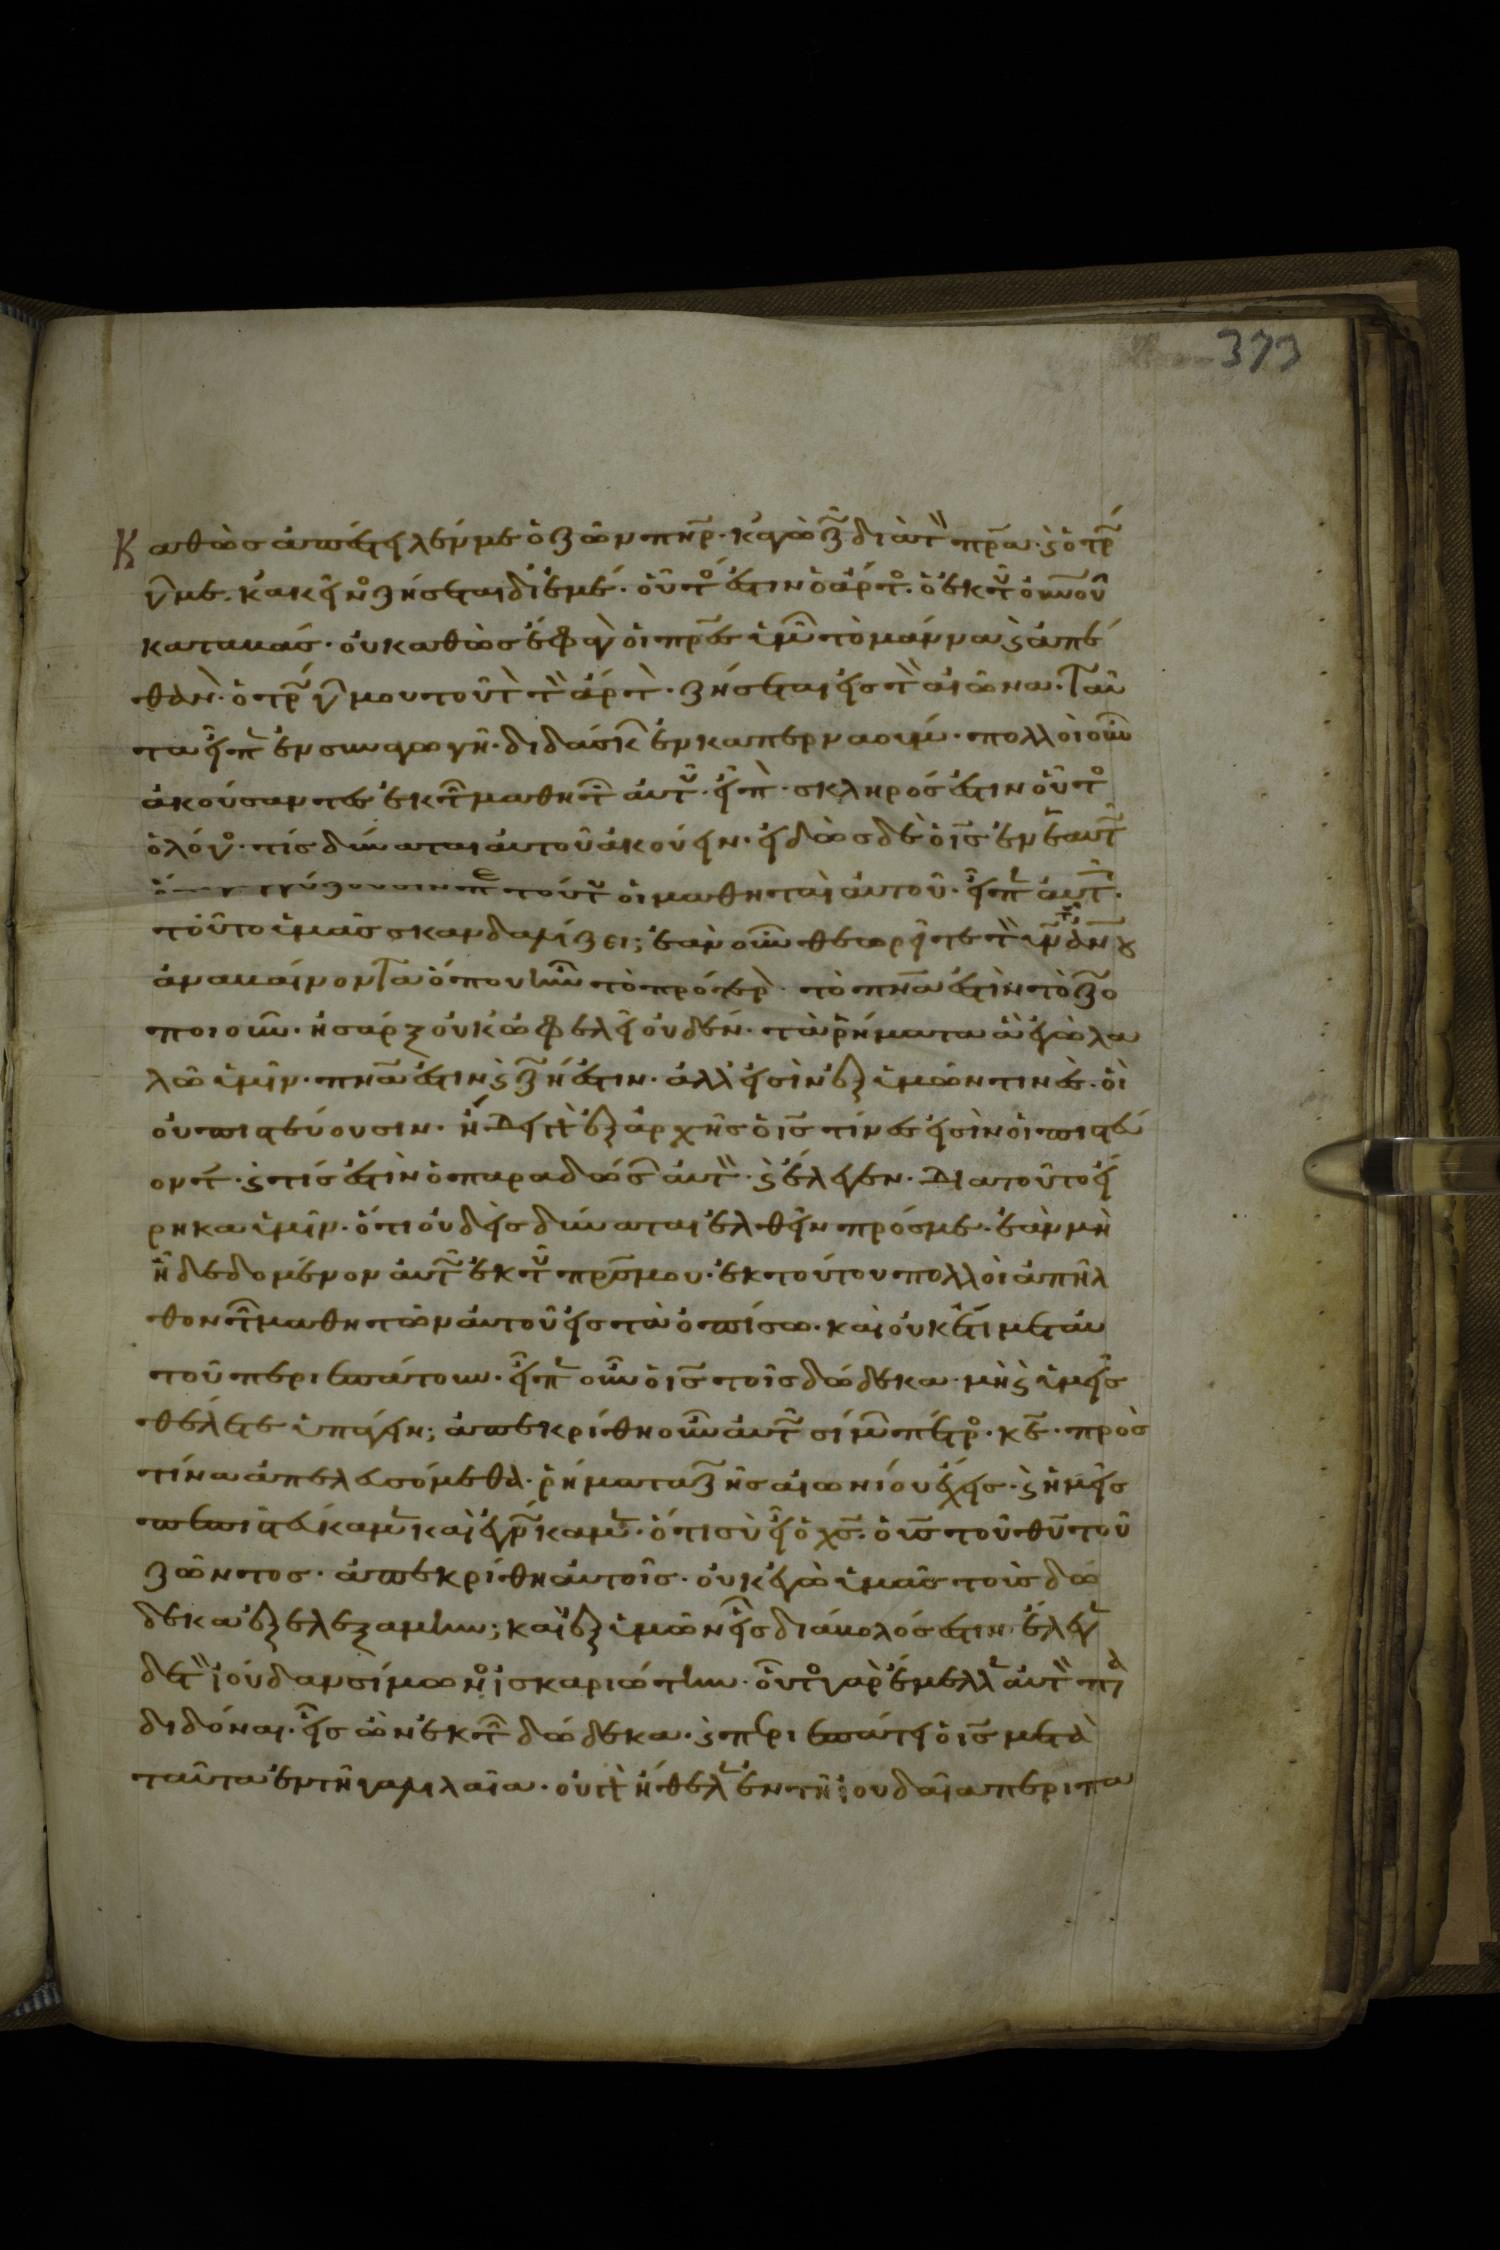 373
Καθὼς ἀπέστειλέν με ὁ ζῶν πηρ̅· κἀγὼ ζῶ διὰ τ̀ πρ̅α· ϛ ὁ τρώ
γων με· κἀκεῖνο ζήσεται δι' ἐμέ· οὗτο ἐστιν ὁ ἄρτο· ὁ ἐκ τοῦ ου̅νου
καταβάς· οὐ καθὼς ἔφαγον οἱ πρ̅ες ὑμῶν τὸ μάννα ϛ ἀπέ
θανον· ὁ τρώγων μου τοῦτον τὸν ἄρτον· ζήσεται εἰς τὸν αἰῶνα· Ταῦ
τα εἶπεν ἐν συναγωγῇ· διδάσκων ἐν καπερναούμ· πολλοὶ οὖν
ἀκούσαντες ἐκ τῶν μαθητῶν αὐτοῦ· εἶπον· σκληρός ἐστιν οὗτο
ὁ λόγο· τίς δύναται αὐτοῦ ἀκούειν· εἰδὼς δὲ ὁ ις̅ ἐν ἑαυτῷ
ὅτι γογγύζουσιν περὶ τούτου οἱ μαθηταὶ αὐτοῦ· εἶπεν αὐτοῖς·
τοῦτο ὑμᾶς σκανδαλίζει; ἐὰν οὖν θεωρεῖτε τὸν υν̅ τοῦ αν̅ου
ἀναβαίνοντα ὅπου ἦν τὸ πρότερον· τὸ πνα̅ ἐστὶν τὸ ζωο
ποιοῦν· ἡ σὰρξ οὐκ ὠφελεῖ οὐδέν· τὰ ῥήματα ἃ ἐγὼ λα
λῶ ὑμῖν· πνα̅ ἐστιν ϛ ζωή ἐστιν· ἀλλ' εἰσὶν ἐξ ὑμῶν τινὲς· οἳ
οὐ πιστεύουσιν· ᾔδει γὰρ ἐξ ἀρχῆς ὁ ις̅ τίνες εἰσὶν οἱ πιστεύ
οντες· ϛ τίς ἐστὶν ὁ παραδώσων αὐτὸν· ϛ ἔλεγεν· Διὰ τοῦτο εἴ
ρηκα ὑμῖν· ὅτι οὐδεὶς δύναται ἐλθεῖν πρός με· ἐὰν μὴ
ἦ δεδομένον αὐτῷ ἐκ τοῦ πρ̅ς μου· ἐκ τούτου πολλοὶ ἀπῆλ
θον τῶν μαθητῶν αὐτοῦ εἰς τὰ ὀπίσω· καὶ οὐκέτι μετ' αὐ
τοῦ περιεπάτουν· εἶπεν οὖν ὁ ις̅ τοῖς δώδεκα· μὴ ϛ ὑμεῖς
θέλετε ὑπάγειν; ἀπεκρίθη οὖν αὐτῷ σίμων πέτρο· κε̅· πρὸς
τίνα ἀπελευσόμεθα· ῥήματα ζωῆς αἰωνίου ἔχεις· ϛ ἡμεῖς
πεπιστεύκαμεν καὶ ἐγνώκαμεν· ὅτι σὺ εἶ ὁ χς̅· ὁ υς̅ τοῦ θυ̅ τοῦ
ζῶντος· ἀπεκρίθη αὐτοῖς· οὐκ ἐγὼ ὑμᾶς τοὺς δώ
δεκα ἐξελεξάμην; καὶ ἐξ ὑμῶν εἷς διάβολός ἐστιν· ἔλεγεν
δὲ τὸν ἰούδαν σίμωνο ἰσκαριώτην· οὗτο γὰρ ἔμελλεν αὐτὸν παρα
διδόναι· εἷς ὢν ἐκ τῶν δώδεκα· ϛ περιεπάτει ὁ ις̅ μετὰ
ταῦτα ἐν τῇ γαλιλαίᾳ· οὐ γὰρ ἤθελεν ἐν τῇ ἰουδαίᾳ περιπα